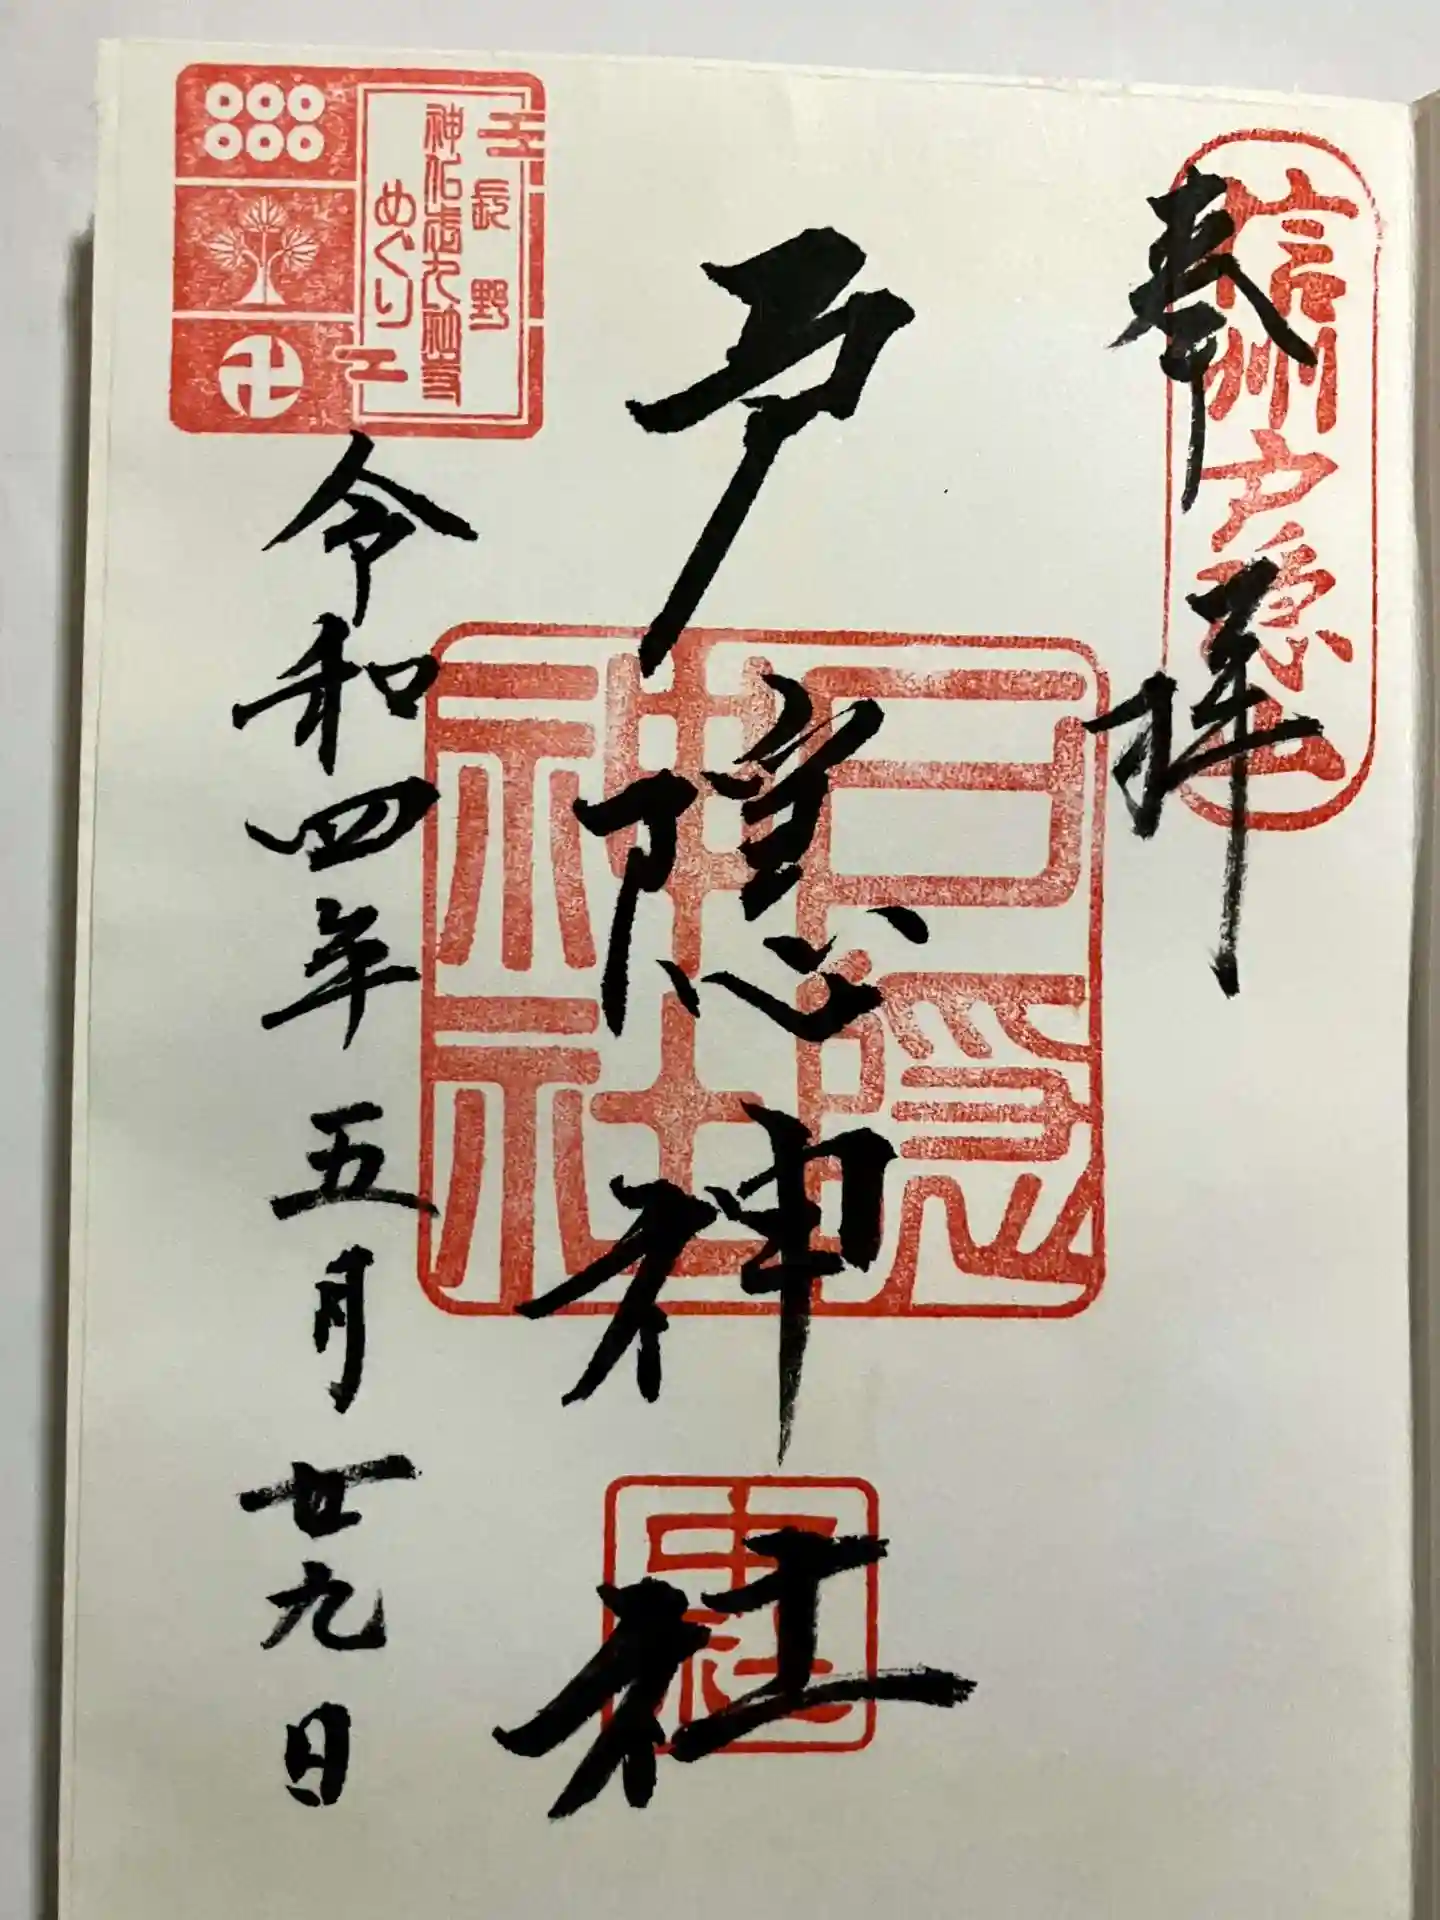 奉拝
信州戸隠山
戸隠神社
戸隠
神社
中社
長野
神仏花九社寺
めぐり
令和四年五月廿九日